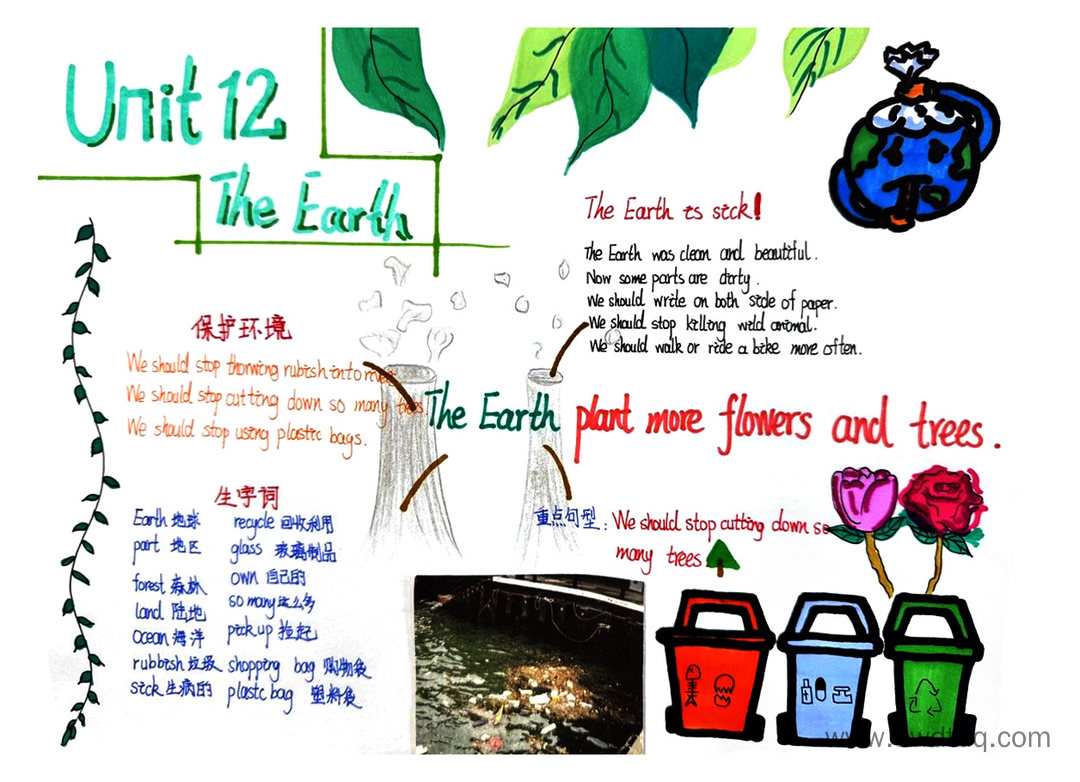 Unit 12
The Earth
The Earth is sick!
The Earth was clean and beautiful.
Now some parts are dirty.
We should write on both side of paper.
We should stop killing wild animal.
We should walk or ride a bike more often.
保护环境
We should stop thorwing rubish into river
We should stop cutting down so many trees
We should stop using plastic bags.
The Earth plant more flowers and trees.
生字词
Earth 地球 recycle 回收利用
part 地区 glass 玻璃制品
forest 森林 own 自己的
land 陆地 so many 这么多
ocean 海洋 pick up 捡起
rubbish 垃圾 shopping bag 购物袋
sick 生病的 plastic bag 塑料袋
重点句型: We should stop cutting down so
many trees